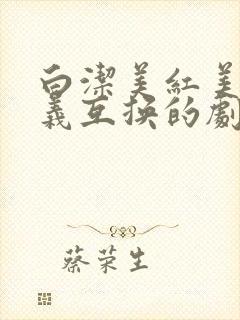 白潔美紅美
義互换的劇
蔡荣生